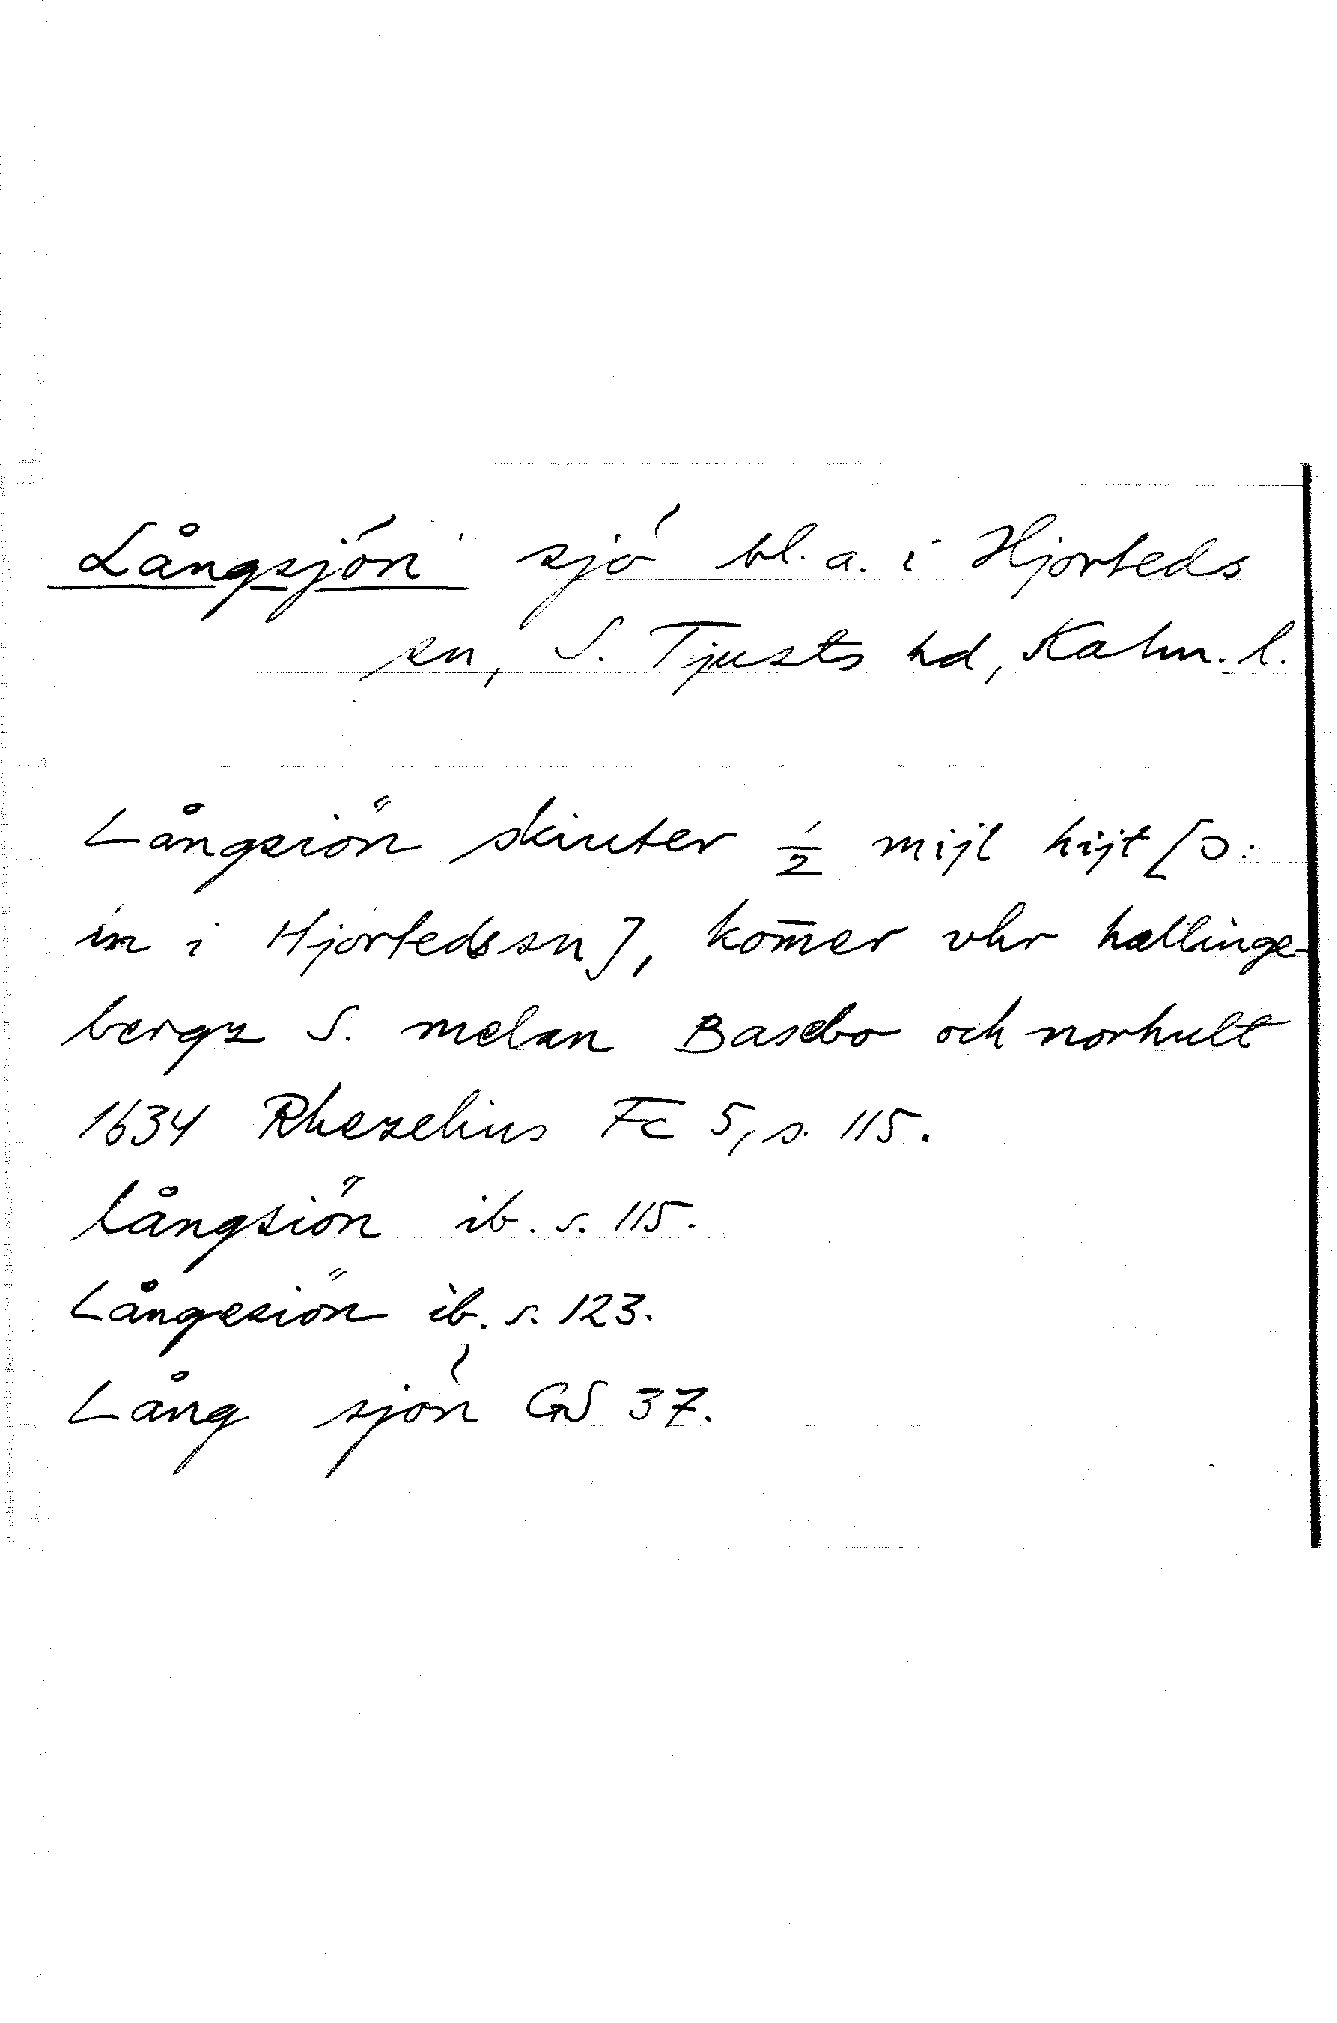 Långsjön sjö bl. a. i Hjorteds
sn, S. Tjusts hd, Kalm. l.
Långsiön skiuter 1/2 mijl hijt [ɔ:
in i Hjortedssn], kom̄er vhr hallinge-
bergz S. melan Basebo och norhult
1634 Rhezelius Fc 5, s. 115.
långsiön ib. s. 115.
Långesiön ib. s. 123.
Lång sjön GS 37.